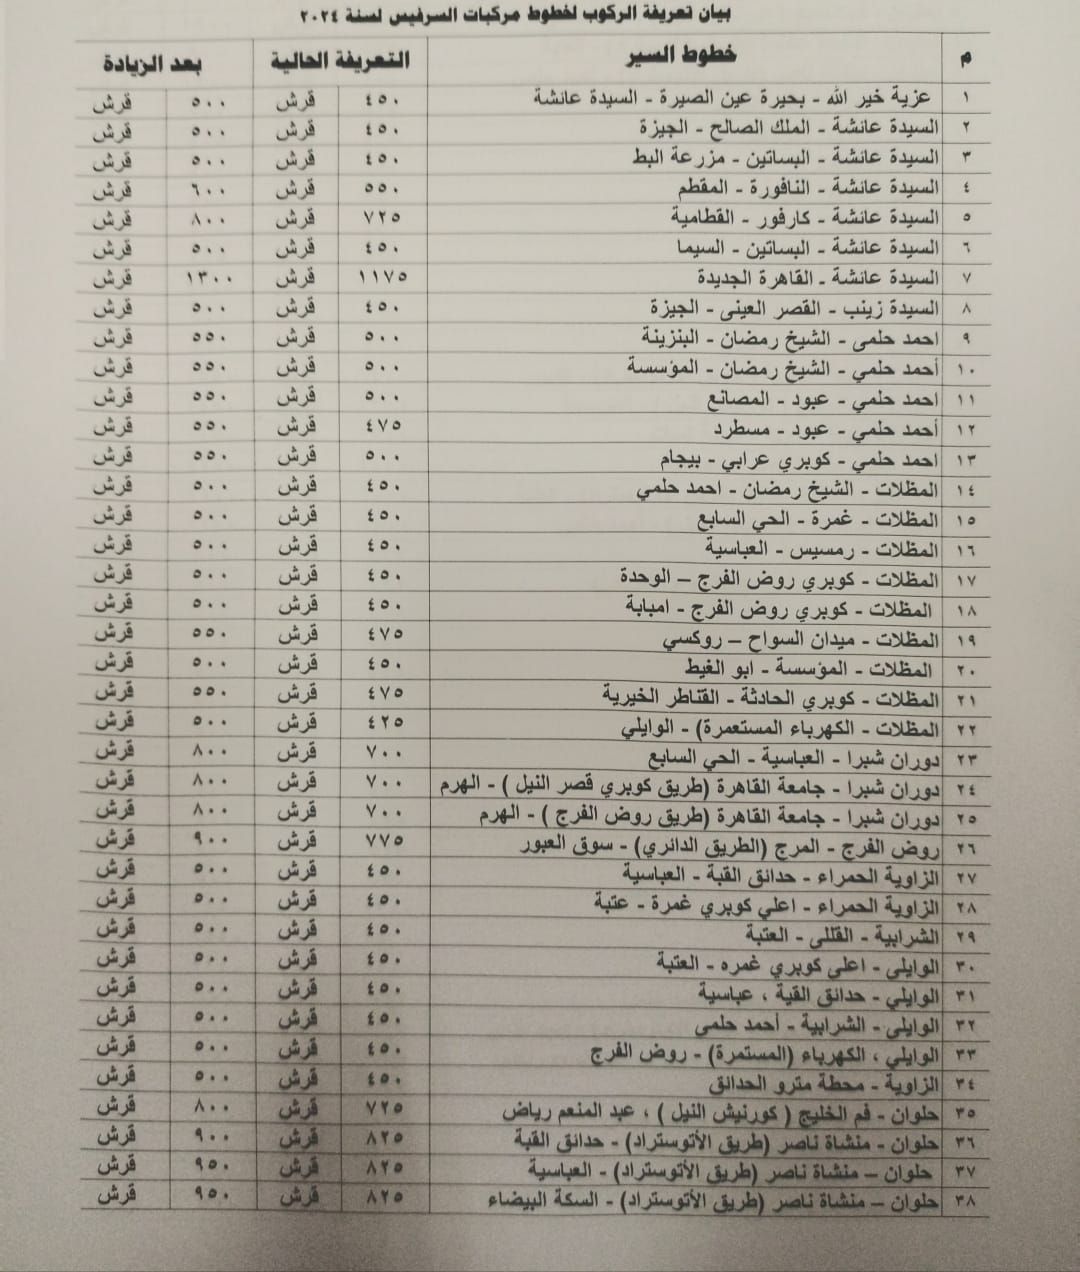 بيان تعريفة الركوب لخطوط مركبات السرفيس لسنة ٢٠٢٤
م خطوط السير التعريفة الحالية بعد الزيادة
١ عزبة خير الله - بحيرة عين الصيرة - السيدة عائشة ٤٥٠ قرش ٥٠٠ قرش
٢ السيدة عائشة - الملك الصالح - الجيزة ٤٥٠ قرش ٥٠٠ قرش
٣ السيدة عائشة - البساتين - مزرعة البط ٤٥٠ قرش ٥٠٠ قرش
٤ السيدة عائشة - النافورة - المقطم ٥٥٠ قرش ٦٠٠ قرش
٥ السيدة عائشة - كارفور - القطامية ٧٢٥ قرش ٨٠٠ قرش
٦ السيدة عائشة - البساتين - السيما ٤٥٠ قرش ٥٠٠ قرش
٧ السيدة عائشة - القاهرة الجديدة ١١٧٥ قرش ١٣٠٠ قرش
٨ السيدة زينب - القصر العينى - الجيزة ٤٥٠ قرش ٥٠٠ قرش
٩ احمد حلمى - الشيخ رمضان - البنزينة ٥٠٠ قرش ٥٥٠ قرش
١٠ أحمد حلمي - الشيخ رمضان - المؤسسة ٥٠٠ قرش ٥٥٠ قرش
١١ احمد حلمي - عبود - المصانع ٥٠٠ قرش ٥٥٠ قرش
١٢ أحمد حلمي - عبود - مسطرد ٤٧٥ قرش ٥٥٠ قرش
١٣ احمد حلمي - كوبري عرابي - بيجام ٥٠٠ قرش ٥٥٠ قرش
١٤ المظلات - الشيخ رمضان - احمد حلمي ٤٥٠ قرش ٥٠٠ قرش
١٥ المظلات - غمرة - الحي السابع ٤٥٠ قرش ٥٠٠ قرش
١٦ المظلات - رمسيس - العباسية ٤٥٠ قرش ٥٠٠ قرش
١٧ المظلات - كوبري روض الفرج – الوحدة ٤٥٠ قرش ٥٠٠ قرش
١٨ المظلات - كوبري روض الفرج - امبابة ٤٥٠ قرش ٥٠٠ قرش
١٩ المظلات - ميدان السواح – روكسي ٤٧٥ قرش ٥٥٠ قرش
٢٠ المظلات - المؤسسة - ابو الغيط ٤٥٠ قرش ٥٠٠ قرش
٢١ المظلات - كوبري الحادثة - القناطر الخيرية ٤٧٥ قرش ٥٥٠ قرش
٢٢ المظلات - الكهرباء المستعمرة) - الوايلي ٤٢٥ قرش ٥٠٠ قرش
٢٣ دوران شبرا - العباسية - الحي السابع ٧٠٠ قرش ٨٠٠ قرش
٢٤ دوران شبرا - جامعة القاهرة (طريق كوبري قصر النيل ) - الهرم ٧٠٠ قرش ٨٠٠ قرش
٢٥ دوران شبرا - جامعة القاهرة (طريق روض الفرج ) - الهرم ٧٠٠ قرش ٨٠٠ قرش
٢٦ روض الفرج - المرج (الطريق الدائري) - سوق العبور ٧٧٥ قرش ٩٠٠ قرش
٢٧ الزاوية الحمراء - حدائق القبة - العباسية ٤٥٠ قرش ٥٠٠ قرش
٢٨ الزاوية الحمراء - اعلي كوبري غمرة - عتبة ٤٥٠ قرش ٥٠٠ قرش
٢٩ الشرابية - القللى - العتبة ٤٥٠ قرش ٥٠٠ قرش
٣٠ الوايلي - اعلي كوبري غمره - العتبة ٤٥٠ قرش ٥٠٠ قرش
٣١ الوايلي - حدائق القبة ، عباسية ٤٥٠ قرش ٥٠٠ قرش
٣٢ الوايلي - الشرابية - أحمد حلمي ٤٥٠ قرش ٥٠٠ قرش
٣٣ الوايلي ، الكهرباء (المستمرة) - روض الفرج ٤٥٠ قرش ٥٠٠ قرش
٣٤ الزاوية - محطة مترو الحدائق ٤٥٠ قرش ٥٠٠ قرش
٣٥ حلوان - فم الخليج ( كورنيش النيل ) ، عبد المنعم رياض ٧٢٥ قرش ٨٠٠ قرش
٣٦ حلوان - منشاة ناصر (طريق الأتوستراد) - حدائق القبة ٨٢٥ قرش ٩٠٠ قرش
٣٧ حلوان – منشاة ناصر (طريق الأتوستراد) - العباسية ٨٢٥ قرش ٩٥٠ قرش
٣٨ حلوان – منشاة ناصر (طريق الأتوستراد) - السكة البيضاء ٨٢٥ قرش ٩٥٠ قرش